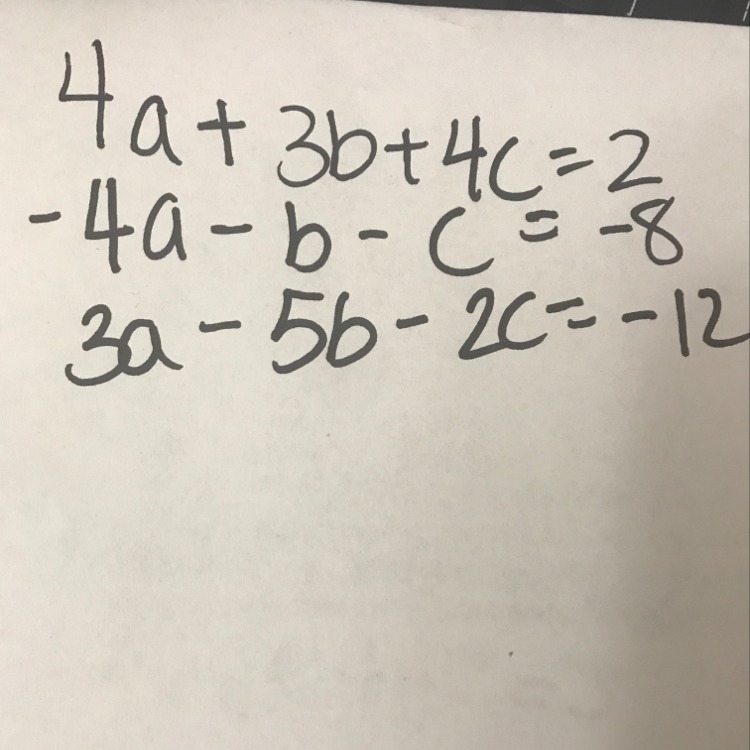 4a + 3b + 4c = 2
-4a - b - c = -8
3a - 5b - 2c = -12